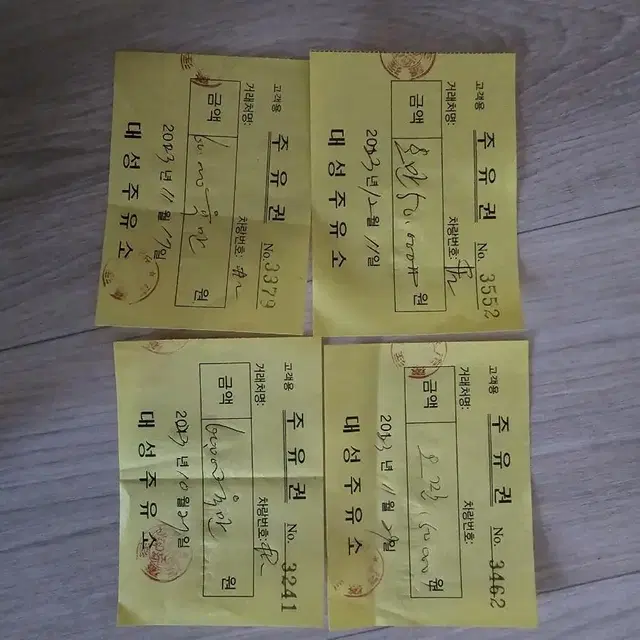 고객용
주유권 No. 3379
거래처명: 차량번호:
금액 60,000 육만 원
2023년 11월 17일
대성주유소
고객용
주유권 No. 3552
거래처명: 차량번호:
금액 오만 50,000 원
2023년 12월 11일
대성주유소
고객용
주유권 No. 3241
거래처명: 차량번호:
금액 60,000 육만 원
2023년 10월 27일
대성주유소
고객용
주유권 No. 3462
거래처명: 차량번호:
금액 오만 50,000 원
2023년 11월 일
대성주유소